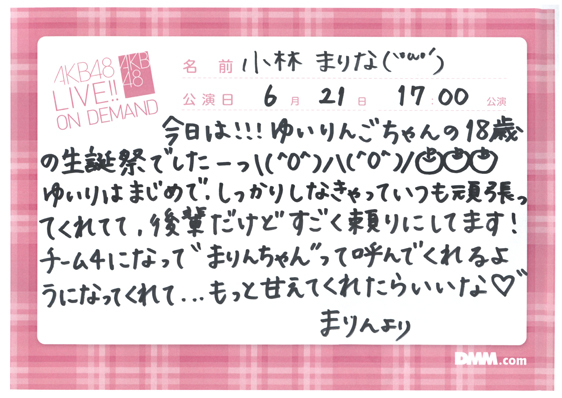 AKB48
LIVE!!
ON DEMAND
AKB
48
名 前 小林 まりな(･ω･)
公演日 6月 21日 17:00 公演
今日は!!! ゆいりんごちゃんの18歳
の生誕祭でしたーっ\(^O^)/\(^O^)/
ゆいりはまじめで、しっかりしなきゃっていつも頑張っ
てくれてて、後輩だけどすごく頼りにしてます!
チーム4になって"まりんちゃん"って呼んでくれるよ
うになってくれて...もっと甘えてくれたらいいな♡
まりんより
DMM.com